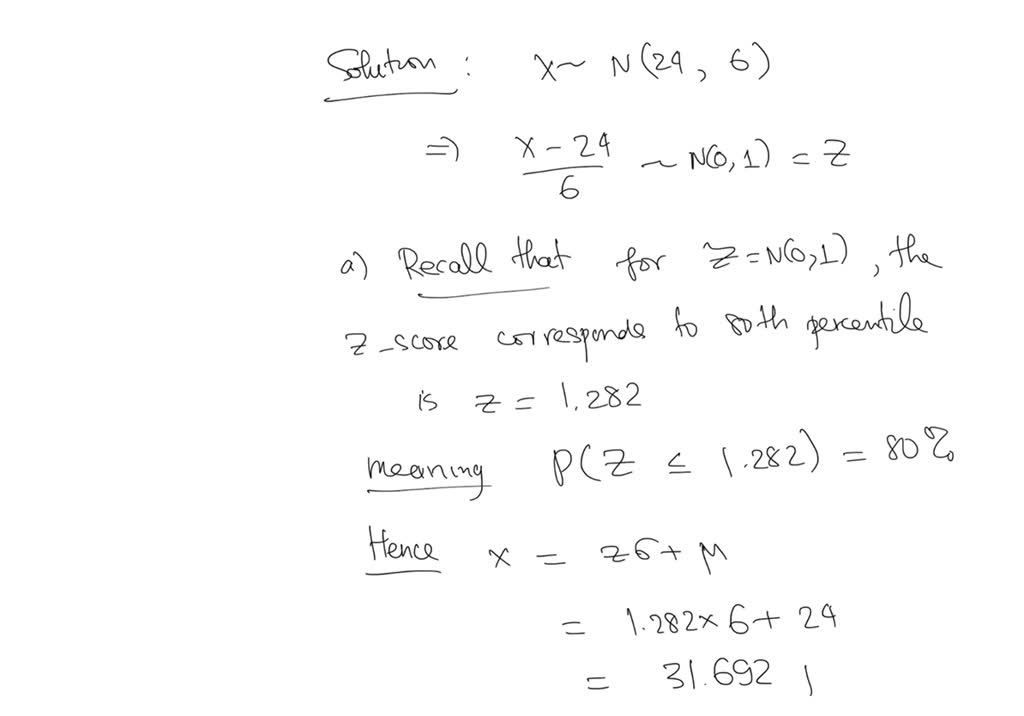 Solution : X ~ N(24, 6)
⇒ X - 24 / 6 ~ N(0, 1) = Z
a) Recall that for Z = N(0,1), the
Z-score corresponds to 80th percentile
is z = 1.282
meaning P(Z ≤ 1.282) = 80%
Hence x = zσ + μ
= 1.282 × 6 + 24
= 31.692